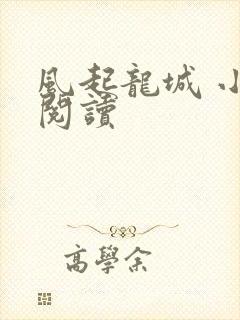 風起龍城 小
閱讀
高學余